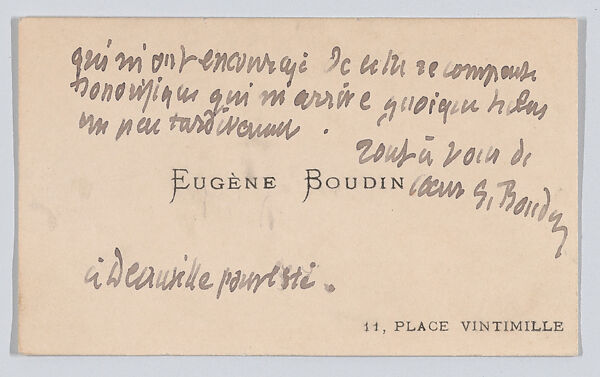 qui m'ont encouragé de cette recompense
honorifique qui m'arrive quoique helas
un peu tardivement.
Tout à vous de
EUGÈNE BOUDIN cœur E. Boudin
à Deauville pour l'été.
11, PLACE VINTIMILLE